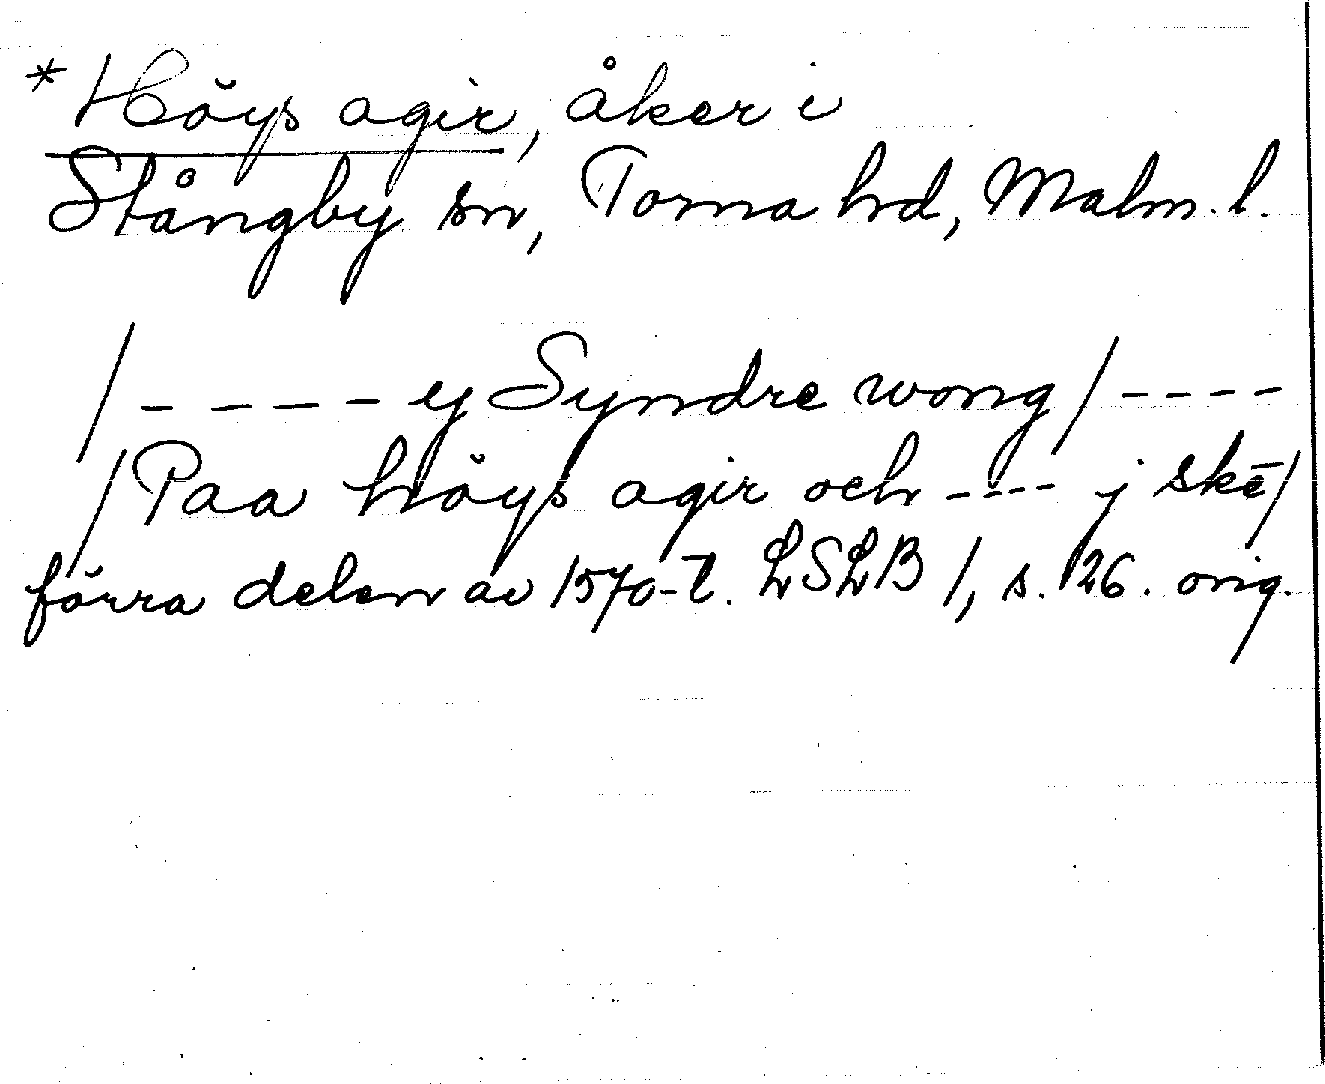 * Höys agir, åker i
Stångby sn, Torna hd, Malm. l.
/ ----- ej Syndre wong / ----
/ Paa höys agir och ---- j skē /
förra delen av 1570-t. LSLB 1, s. 126. orig.